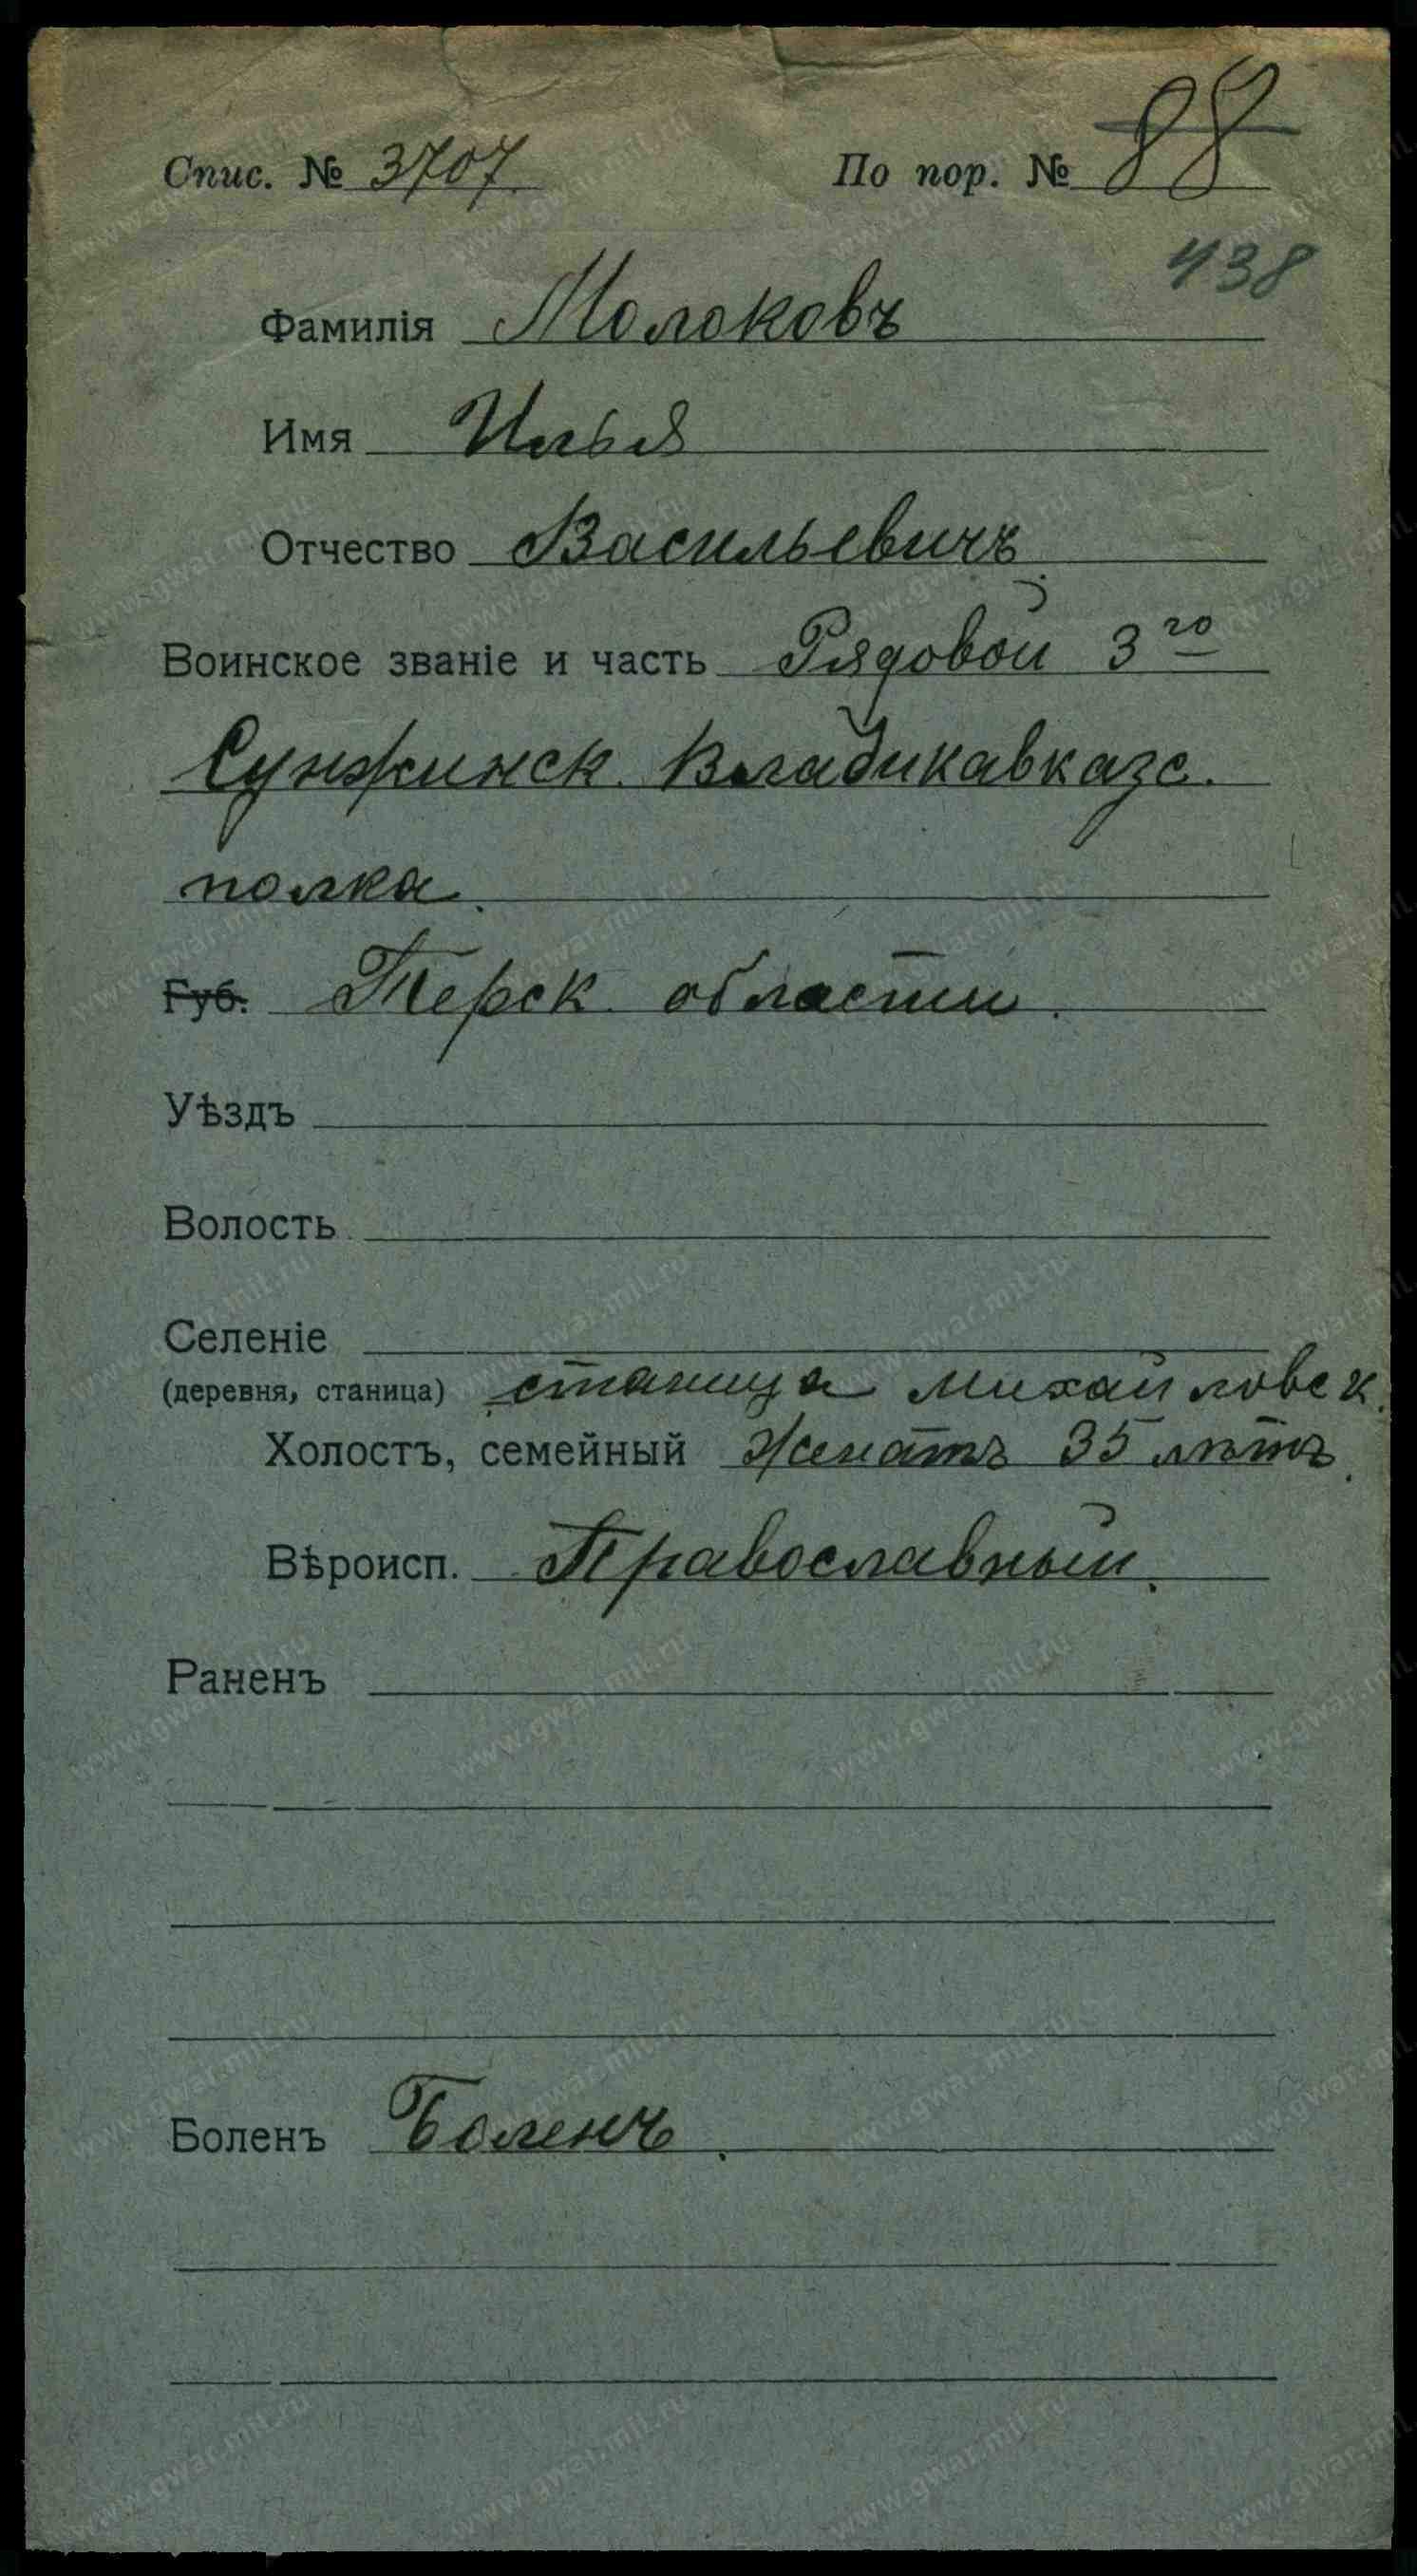 Спис. № 3707. По пор. № 88
438
Фамилія Молоковъ
Имя Илья
Отчество Васильевичъ.
Воинское званіе и часть Рядовой 3го
Сунжинск. Владикавказс.
полка.
Губ. Терск. области.
Уѣздъ
Волость
Селеніе
(деревня, станица) станица Михайловск.
Холостъ, семейный Женатъ 35 лѣтъ.
Вѣроисп. Православный.
Раненъ
Боленъ Боленъ.